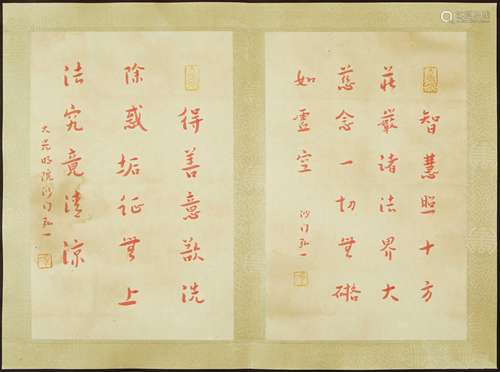 智慧照十方
莊嚴諸法界大
慈念一切無礙
如虛空
沙門弘一
得善意欲洗
除惑垢証無上
法究竟清涼
沙門弘一